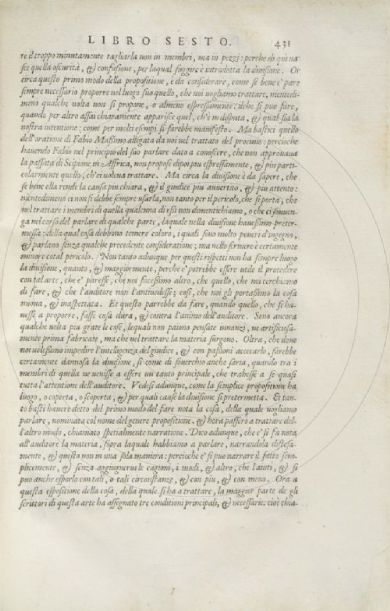 LIBRO SESTO. 431
re il troppo minutamente tagliarla non in membri, ma in pezzi: perche di qui na
sce quella oscurità, & confusione, per laqual fuggire è introdotta la diuisione. Or
circa questo primo modo della propositione, è da considerare, come se bene è pare
sempre necessario proporre nel luogo suo quello, che noi uogliamo trattare, nientedi-
meno qualche uolta non si propone, o almeno espressamente: ilche si puo fare,
quando per altro assai chiaramente apparisce quel, ch'è in disputa, & qual sia la
nostra intentione: come per molti esempi si farebbe manifesto. Ma basti quello
dell'oratione di Fabio Massimo allegata da noi nel trattato del proemio: percioche
hauendo Fabio nel principio del suo parlare dato a conoscere, che non approuaua
la passata di Scipione in Affrica, non propose dipoi piu espressamente, & piu parti-
colarmente quello, ch'ei uoleua trattare. Ma circa la diuisione è da sapere, che
se bene ella rende la causa piu chiara, & il giudice piu auuertito, & piu attento:
nientedimeno ei non si debbe sempre usarla, non tanto per il pericolo, che si porta, che
nel trattare i membri di quella qualcuno di essi non dimentichiamo, o che ci souuen-
ga nel corso del parlare di qualche parte, laquale nella diuisione hauessimo preter-
messa: della qual cosa debbono temere coloro, i quali sono molto poueri d'ingegno,
& parlano senza qualche precedente consideratione; ma nello scriuere è certamente
minore cotal pericolo. Non tanto adunque per questi rispetti non ha sempre luogo
la diuisione, quanto, & maggiormente, perche è potrebbe essere utile il procedere
con tal arte, che è paresse, che noi facessimo altro, che quello, che noi cerchiamo
di fare, & che l'auditore non l'antiuedesse; così, che noi gli portassimo la cosa
nuoua, & inaspettata. Et questo parrebbe da fare, quando quello, che si ha-
uesse a proporre, fusse cosa dura, & contra l'animo dell'auditore. Sono ancora
qualche uolta piu grate le cose, lequali non paiono pensate innanzi, ne artificiosa-
mente prima fabricate, ma che nel trattare la materia surgono. Oltra, che doue
noi uolessimo impedire l'intelligenza del giudice, & con passioni accecarlo, sarebbe
certamente dannosa la diuisione, si come da souerchio anche saria, quando tra i
membri di quella ne uenisse a essere un tanto principale, che trahesse a se quasi
tutta l'attentione dell'auditore. Vedesi adunque, come la semplice propositione ha
luogo, o coperta, o scoperta, & per quali cause la diuisione si pretermetta. Et tan-
to basti hauere detto del primo modo del fare nota la cosa, della quale uogliamo
parlare, nominata col nome del genere propositione. & hora passerò a trattare del-
l'altro modo, chiamato spetialmente narratione. Dico adunque, che è si fa nota
all'auditore la materia, sopra laquale habbiamo a parlare, narrandola distesa-
mente, & questo non in una sola maniera: percioche è si puo narrare il fatto sem-
plicemente, & senza aggiugnerui le cagioni, i modi, & altro, che l'aiuti, & si
puo anche esporlo con tali, o tali circonstanze, & con piu, & con meno. Ora a
questa espositione della cosa, della quale si ha a trattare, la maggior parte de gli
scrittori di questa arte ha assegnato tre conditioni principali, & necessarie: cioè chia-